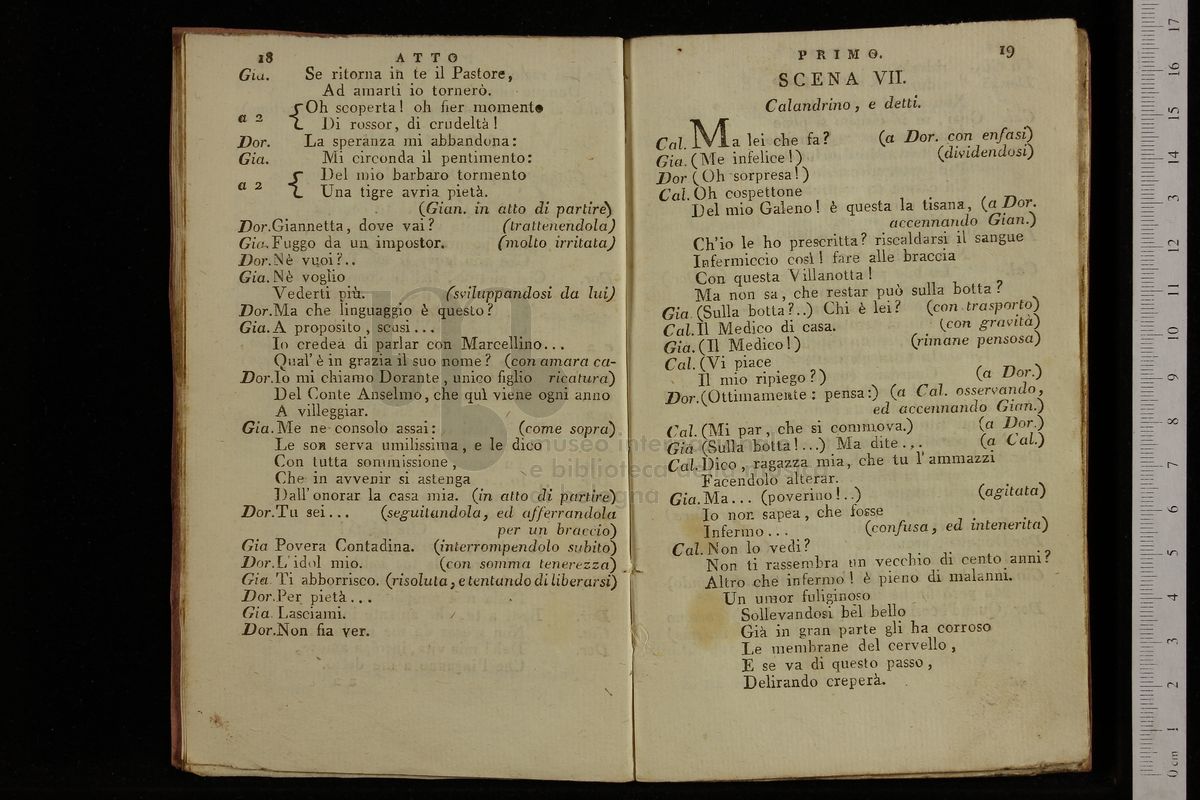 18 ATTO
Gia. Se ritorna in te il Pastore,
Ad amarti io tornerò.
a 2 { Oh scoperta! oh fier momento
Di rossor, di crudeltà!
Dor. La speranza mi abbandona:
Gia. Mi circonda il pentimento:
a 2 { Del mio barbaro tormento
Una tigre avria pietà.
(Gian. in atto di partire)
Dor. Giannetta, dove vai? (trattenendola)
Gia. Fuggo da un impostor. (molto irritata)
Dor. Nè vuoi?..
Gia. Nè voglio
Vederti più. (sviluppandosi da lui)
Dor. Ma che linguaggio è questo?
Gia. A proposito, scusi...
Io credea di parlar con Marcellino...
Qual' è in grazia il suo nome? (con amara ca-
Dor. Io mi chiamo Dorante, unico figlio ricatura)
Del Conte Anselmo, che quì viene ogni anno
A villeggiar.
Gia. Me ne consolo assai: (come sopra)
Le son serva umilissima, e le dico
Con tutta sommissione,
Che in avvenir si astenga
Dall' onorar la casa mia. (in atto di partire)
Dor. Tu sei... (seguitandola, ed afferrandola
per un braccio)
Gia Povera Contadina. (interrompendolo subito)
Dor. L' idol mio. (con somma tenerezza)
Gia Ti abborrisco. (risoluta, e tentando di liberarsi)
Dor. Per pietà...
Gia. Lasciami.
Dor. Non fia ver.
PRIMO. 19
SCENA VII.
Calandrino, e detti.
Cal. Ma lei che fa? (a Dor. con enfasi)
Gia. (Me infelice!) (dividendosi)
Dor (Oh sorpresa!)
Cal. Oh cospettone
Del mio Galeno! è questa la tisana, (a Dor.
accennando Gian.)
Ch'io le ho prescritta? riscaldarsi il sangue
Infermiccio così! fare alle braccia
Con questa Villanotta!
Ma non sa, che restar può sulla botta?
Gia (Sulla botta?..) Chi è lei? (con trasporto)
Cal. Il Medico di casa. (con gravità)
Gia. (Il Medico!) (rimane pensosa)
Cal. (Vi piace
Il mio ripiego?) (a Dor.)
Dor. (Ottimamente: pensa:) (a Cal. osservando,
ed accennando Gian.)
Cal. (Mi par, che si commova.) (a Dor.)
Gia (Sulla botta!...) Ma dite... (a Cal.)
Cal. Dico, ragazza mia, che tu l'ammazzi
Facendolo alterar.
Gia. Ma... (poverino!..) (agitata)
Io non sapea, che fosse
Infermo... (confusa, ed intenerita)
Cal. Non lo vedi?
Non ti rassembra un vecchio di cento anni?
Altro che infermo! è pieno di malanni.
Un umor fuliginoso
Sollevandosi bel bello
Già in gran parte gli ha corroso
Le membrane del cervello,
E se va di questo passo,
Delirando creperà.